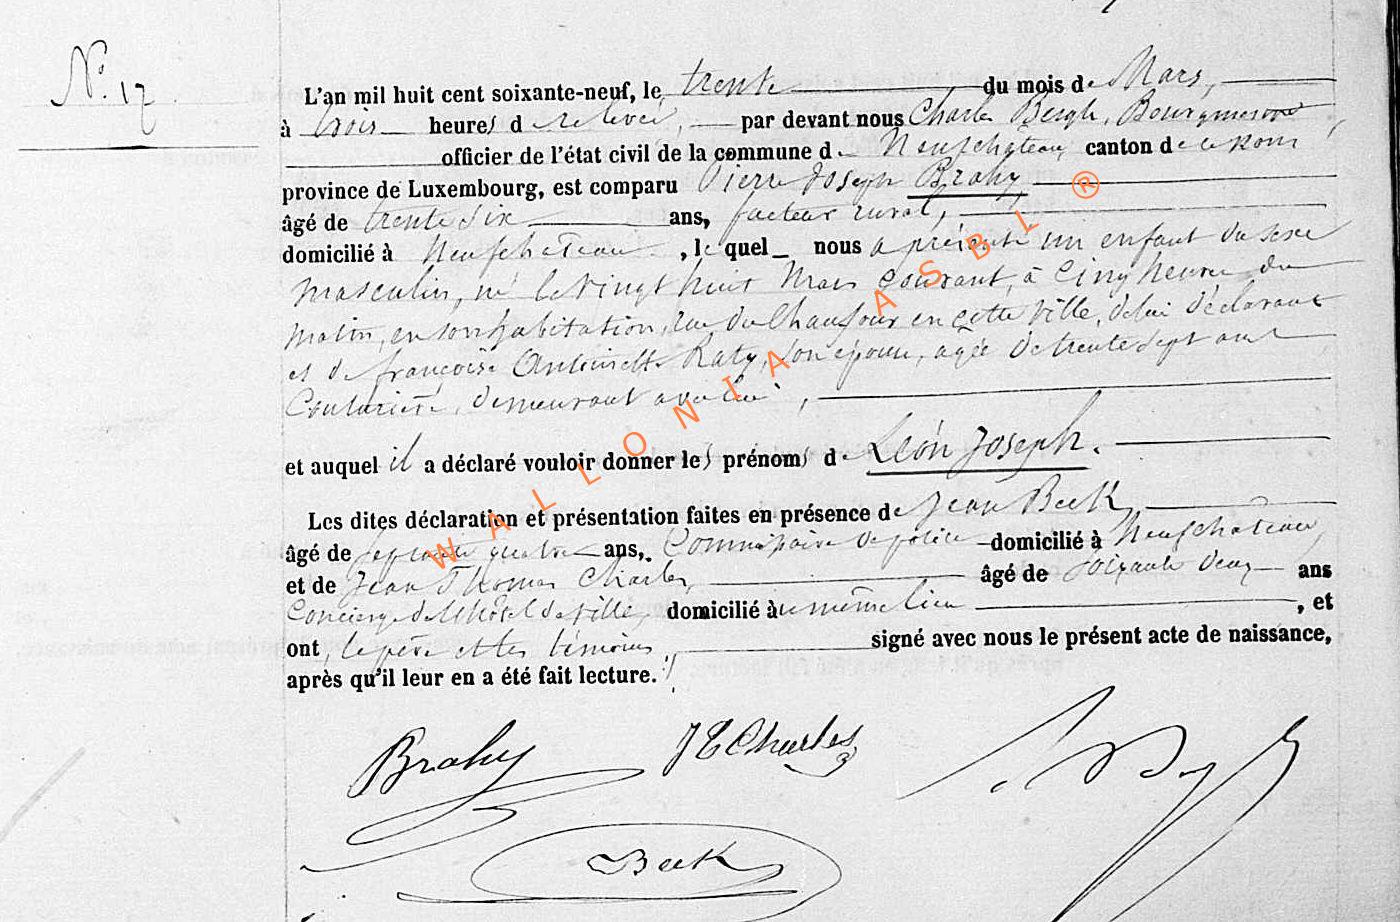 N° 17
L'an mil huit cent soixante-neuf, le trente du mois de Mars,
à trois heures de relevée, par devant nous Charles Bergh, Bourgmestre,
officier de l'état civil de la commune de Neufchâteau, canton de ce nom
province de Luxembourg, est comparu Pierre Joseph Brahy
âgé de trente six ans, facteur rural,
domicilié à Neufchateau, lequel nous a présenté un enfant du sexe
masculin, né le vingt huit Mars courant, à cinq heures du
matin, en son habitation, rue du Chaufour en cette ville, de lui déclarant
et de françoise Antoinette Raty, son épouse, agée de trente sept ans
Couturière, demeurant avec lui,
et auquel il a déclaré vouloir donner les prénoms de Léon Joseph.
Les dites déclaration et présentation faites en présence de Jean Beck
âgé de septante quatre ans, Commissaire de police domicilié à Neufchateau,
et de Jean Thomas Charles, âgé de soixante deux ans
Concierge de l'hôtel de ville, domicilié au même lieu, et
ont, le père et les témoins, signé avec nous le présent acte de naissance,
après qu'il leur en a été fait lecture.
Brahy JT Charles
Beck
WALLONIA ASBL ®